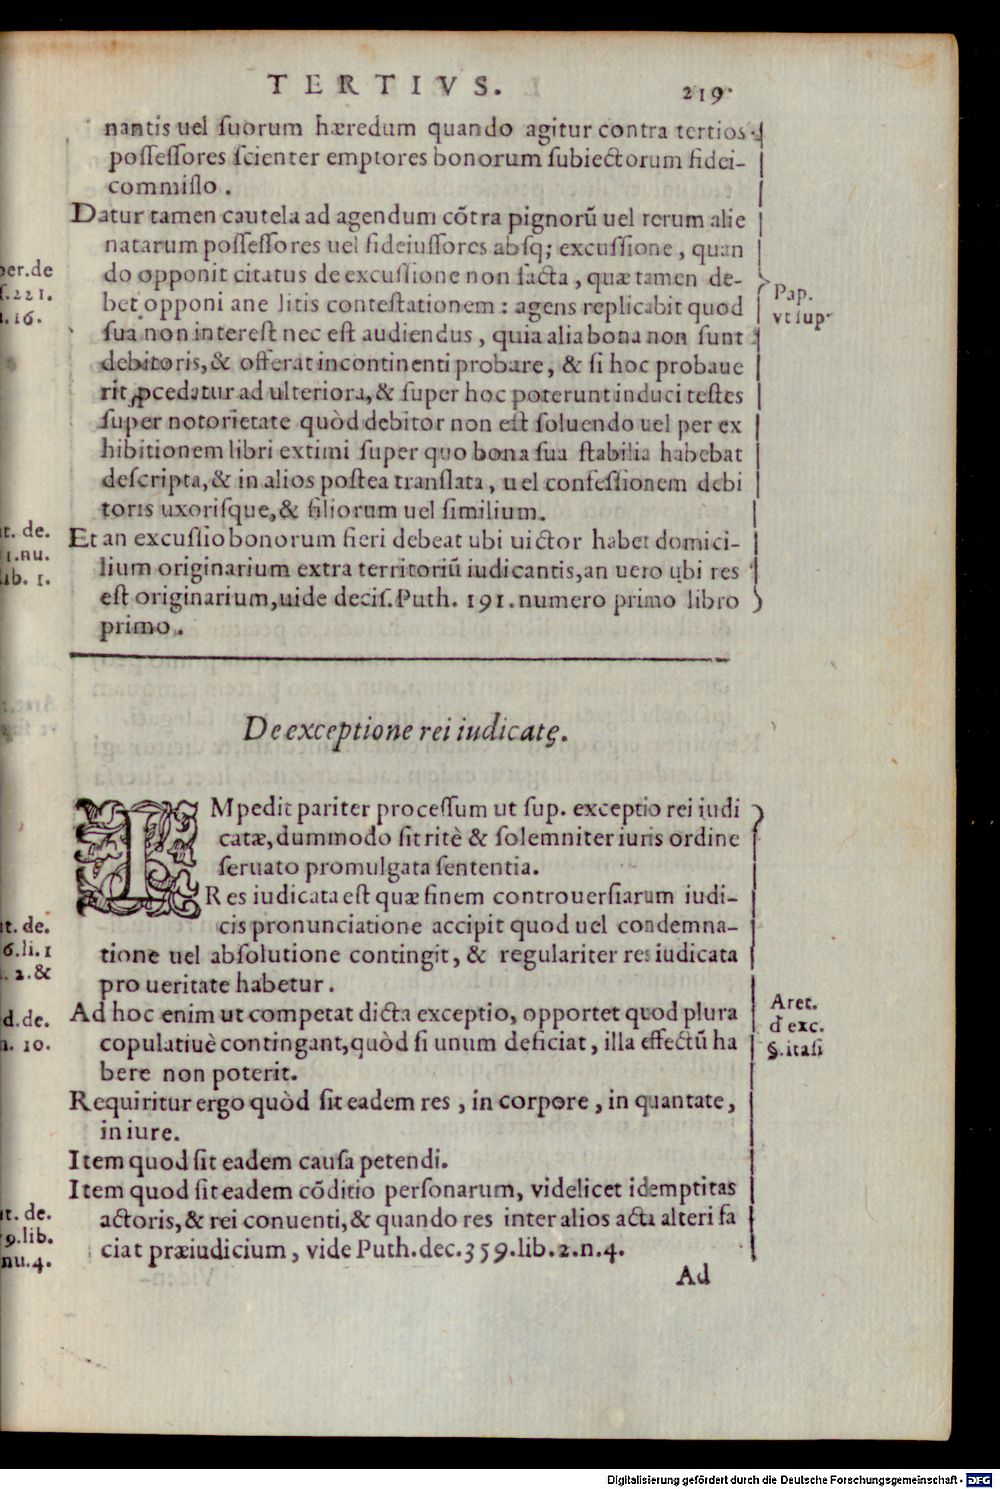 TERTIVS.
219
nantis uel ſuorum hæredum quando agitur contra tertios
poſſeſſores ſcienter emptores bonorum ſubiectorum fidei-
commiſſo.
Datur tamen cautela ad agendum cōtra pignorū uel rerum alie
natarum poſſeſſores uel fideiuſſores abſq; excuſſione, quan
do opponit citatus de excuſſione non facta, quæ tamen de-
bet opponi ane litis conteſtationem: agens replicabit quod
ſua non intereſt nec eſt audiendus, quia alia bona non ſunt
debitoris, & offerat incontinenti probare, & ſi hoc probaue
rit ꝓcedatur ad ulteriora, & ſuper hoc poterunt induci teſtes
ſuper notorietate quòd debitor non eſt ſoluendo uel per ex
hibitionem libri extimi ſuper quo bona ſua ſtabilia habebat
deſcripta, & in alios poſtea tranſlata, uel confeſſionem debi
toris uxoriſque, & filiorum uel ſimilium.
Et an excuſſio bonorum fieri debeat ubi uictor habet domici-
lium originarium extra territoriū iudicantis, an uero ubi res
eſt originarium, uide deciſ. Puth. 191. numero primo libro
primo.
per.de
ſ.221.
n.16.
Pap.
vt ſup.
t. de.
1.nu.
lib. 1.
De exceptione rei iudicatę.
IMpedit pariter proceſſum ut ſup. exceptio rei iudi
catæ, dummodo ſit ritè & ſolemniter iuris ordine
ſeruato promulgata ſententia.
Res iudicata eſt quæ finem controuerſiarum iudi-
cis pronunciatione accipit quod uel condemna-
tione uel abſolutione contingit, & regulariter res iudicata
pro ueritate habetur.
Ad hoc enim ut competat dicta exceptio, opportet quod plura
copulatiuè contingant, quòd ſi unum deficiat, illa effectū ha
bere non poterit.
Requiritur ergo quòd ſit eadem res, in corpore, in quantate,
in iure.
Item quod ſit eadem cauſa petendi.
Item quod ſit eadem cōditio perſonarum, videlicet idemptitas
actoris, & rei conuenti, & quando res inter alios acta alteri fa
ciat præiudicium, vide Puth. dec. 359. lib. 2. n. 4.
t. de.
6.li.1
. 2.&
d.de.
n. 10.
Aret.
đ exc.
§.itaſi
t. de.
9.lib.
nu.4.
Ad
Digitalisierung gefördert durch die Deutsche Forschungsgemeinschaft - DFG